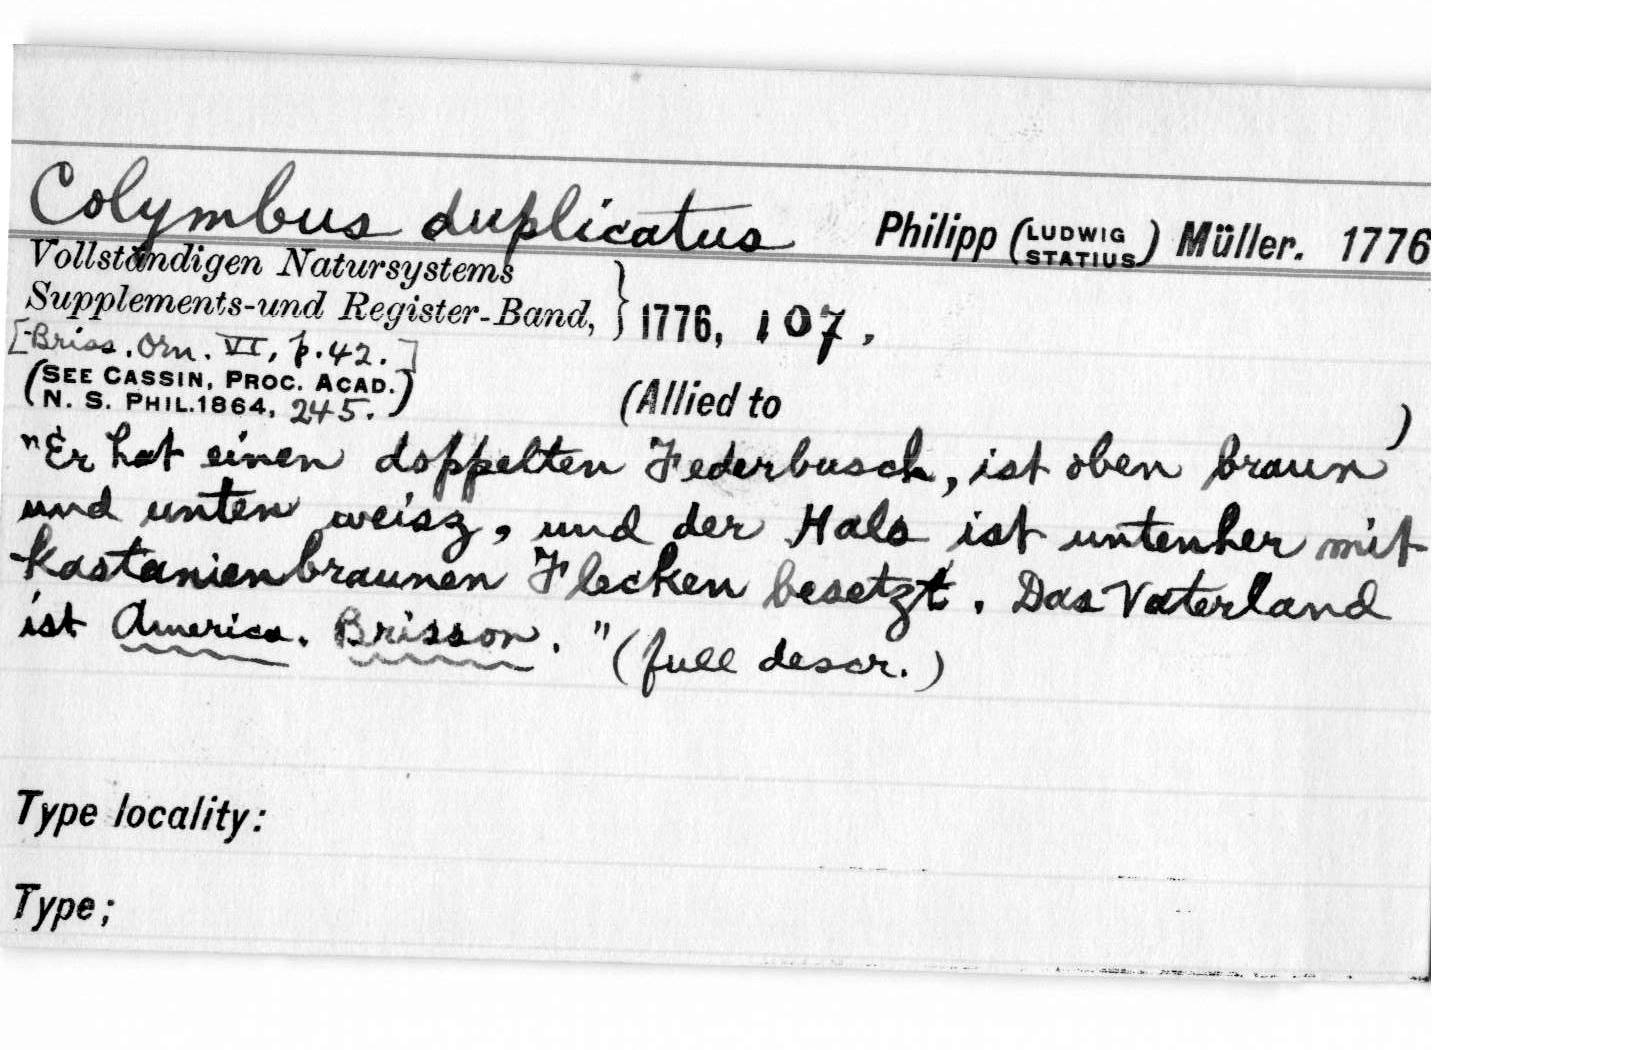 Colymbus duplicatus Philipp (LUDWIG STATIUS) Müller. 1776
Vollständigen Natursystems
Supplements-und Register-Band, } 1776, 107.
[Briss. Orn. VI, p. 42.]
(SEE CASSIN, PROC. ACAD.
N. S. PHIL. 1864, 245.) (Allied to )
"Er hat einen doppelten Federbusch, ist oben braun
und unten weisz, und der Hals ist untenher mit
kastanienbraunen Flecken besetzt. Das Vaterland
ist America. Brisson." (full descr.)
Type locality:
Type;